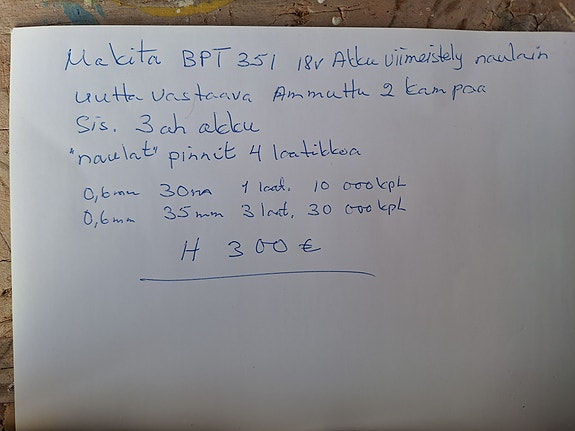 Makita BPT 351 18v Akku viimeistely naulain
uutta vastaava Ammuttu 2 kampaa
Sis. 3ah akku
"naulat" pinnit 4 laatikkoa
0,6mm 30mm 1 laat. 10 000kpl
0,6mm 35mm 3 laat. 30 000kpl
H 300€